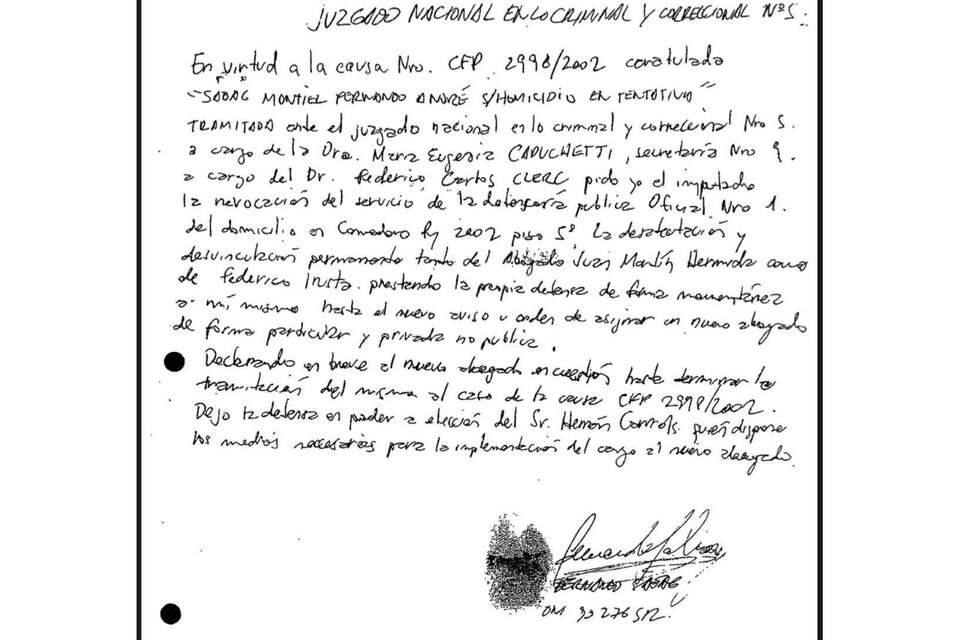 JUZGADO NACIONAL EN LO CRIMINAL Y CORRECCIONAL Nº5.
En virtud a la causa Nro. CFP 2998/2002 caratulada
"SABAG MONTIEL FERNANDO ANDRÉ S/HOMICIDIO EN TENTATIVA"
TRAMITADA ante el juzgado nacional en lo criminal y correccional Nro 5.
a cargo de la Dra. Maria Eugenia CAPUCHETTI, secretaría Nro 9.
a cargo del Dr. Federico Carlos CLERC pido yo el imputado
la revocación del servicio de la defensoría publica Oficial Nro 1.
del domicilio en Comodoro Py 2002 piso 5º la desafectación y
desvinculación permanente tanto del Abogado Juan Martín Hermida como
de Federico prestando la propia defensa de forma momentánea
a mí mismo hasta el nuevo aviso u orden de asignar un nuevo abogado
de forma particular y privada no publica.
Declarando en breve al nuevo abogado en cuestión hasta terminar la
tramitación del mismo al caso de la causa CFP 2998/2002.
Dejo la defensa en poder a elección del Sr. Hernán quién dispone
los medios necesarios para la implementación del cargo al nuevo abogado.
FERNANDO SABAG